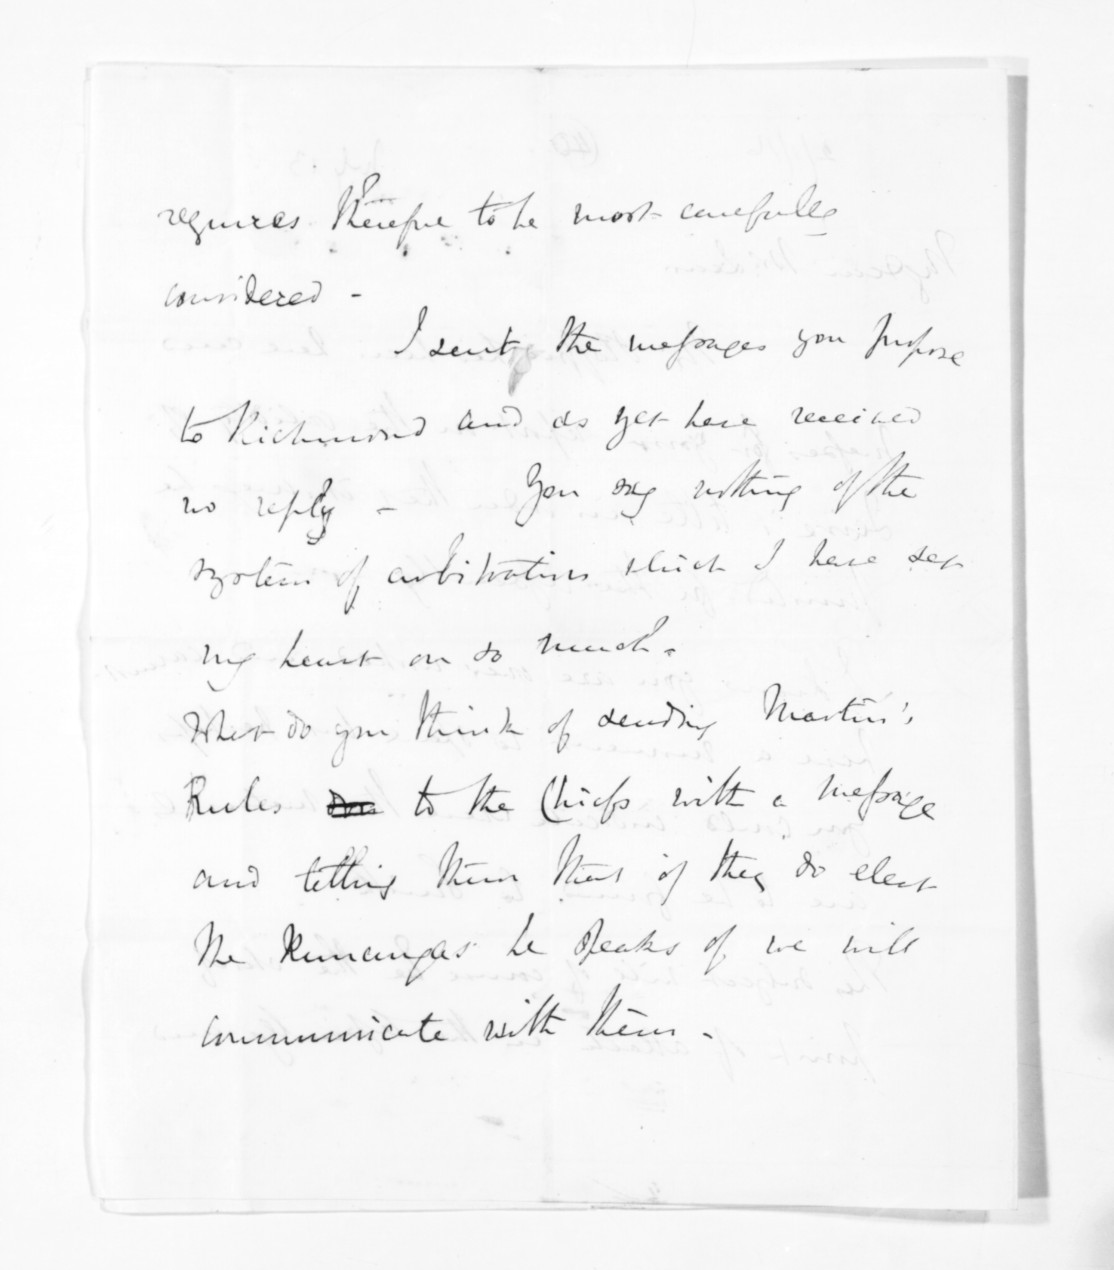 requires therefore to be most carefully
considered -
I sent the messages you propose
to Richmond and as yet have received
no reply - You say nothing of the
system of arbitration which I have set
my heart on so much.
What do you think of sending Martin's
Rules to the Chiefs with a message
and telling them that if they do elect
the Runangas he speaks of we will
communicate with them.